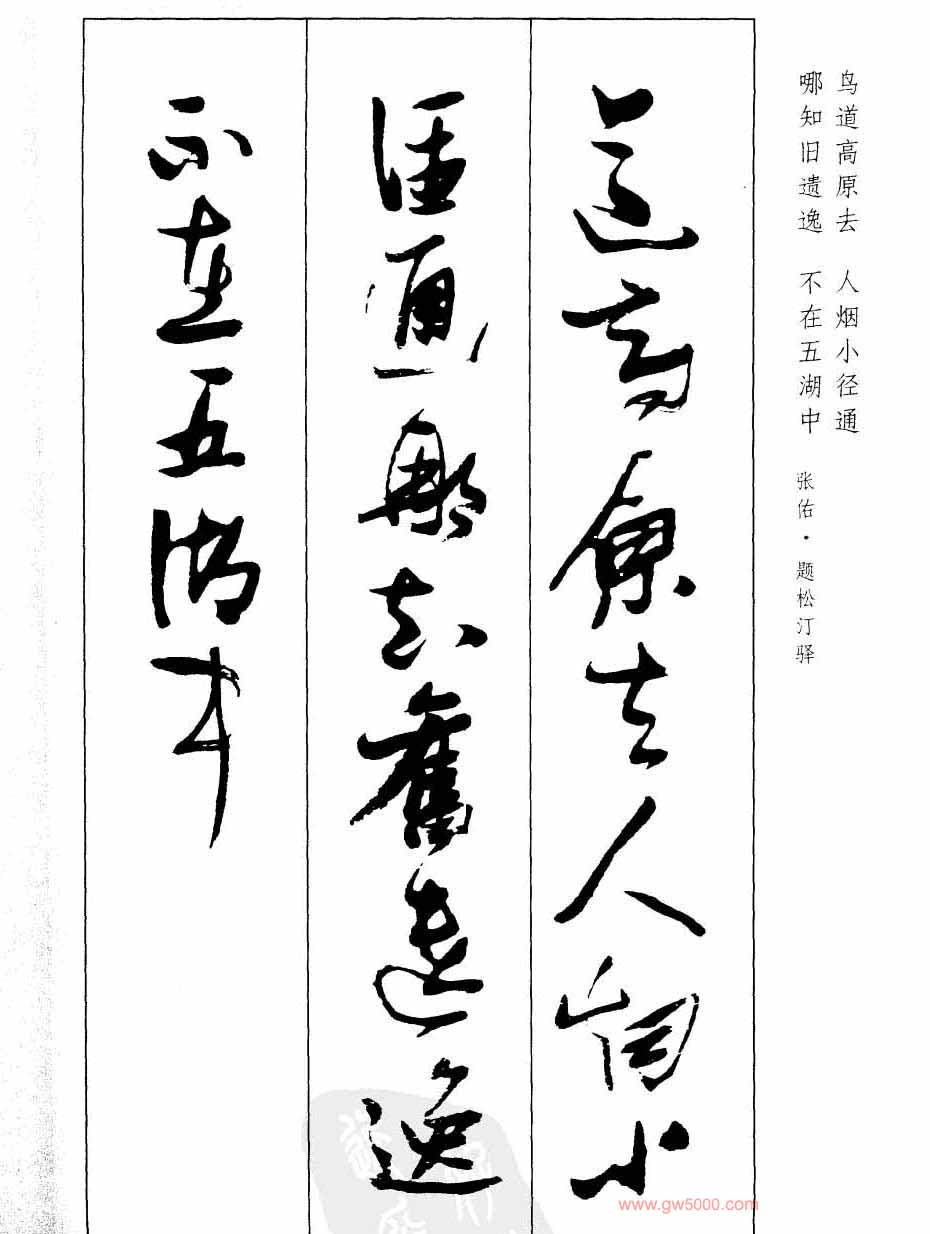 鸟道高原去 人烟小径通
哪知旧遗逸 不在五湖中 张佑·题松汀驿
道高原去人烟小
径通那知舊遗逸
不在五湖中
www.gw5000.com